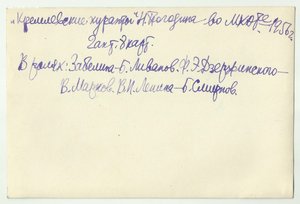 „Кремлевские куранты" Н. Погодина - во МХАТе 1956г.
2акт. 8карт.
В ролях: Забелина - Б. Ливанов. Ф.Э. Дзержинского -
В. Марков. В.И. Ленина - Б. Смирнов.